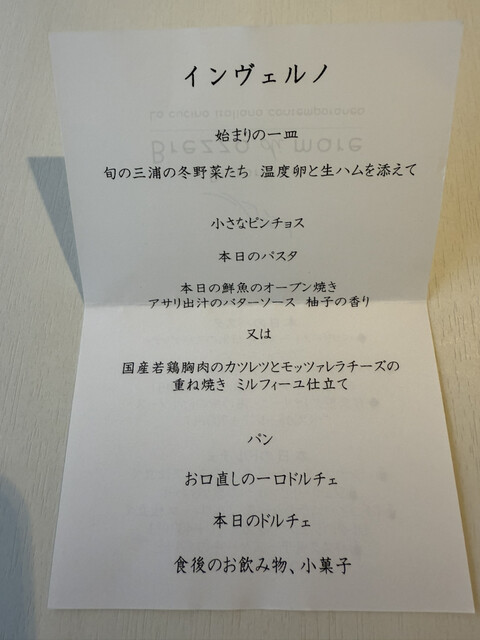 インヴェルノ
始まりの一皿
旬の三浦の冬野菜たち 温度卵と生ハムを添えて
小さなピンチョス
本日のパスタ
本日の鮮魚のオーブン焼き
アサリ出汁のバターソース 柚子の香り
又は
国産若鶏胸肉のカツレツとモッツァレラチーズの
重ね焼き ミルフィーユ仕立て
パン
お口直しの一口ドルチェ
本日のドルチェ
食後のお飲み物、小菓子